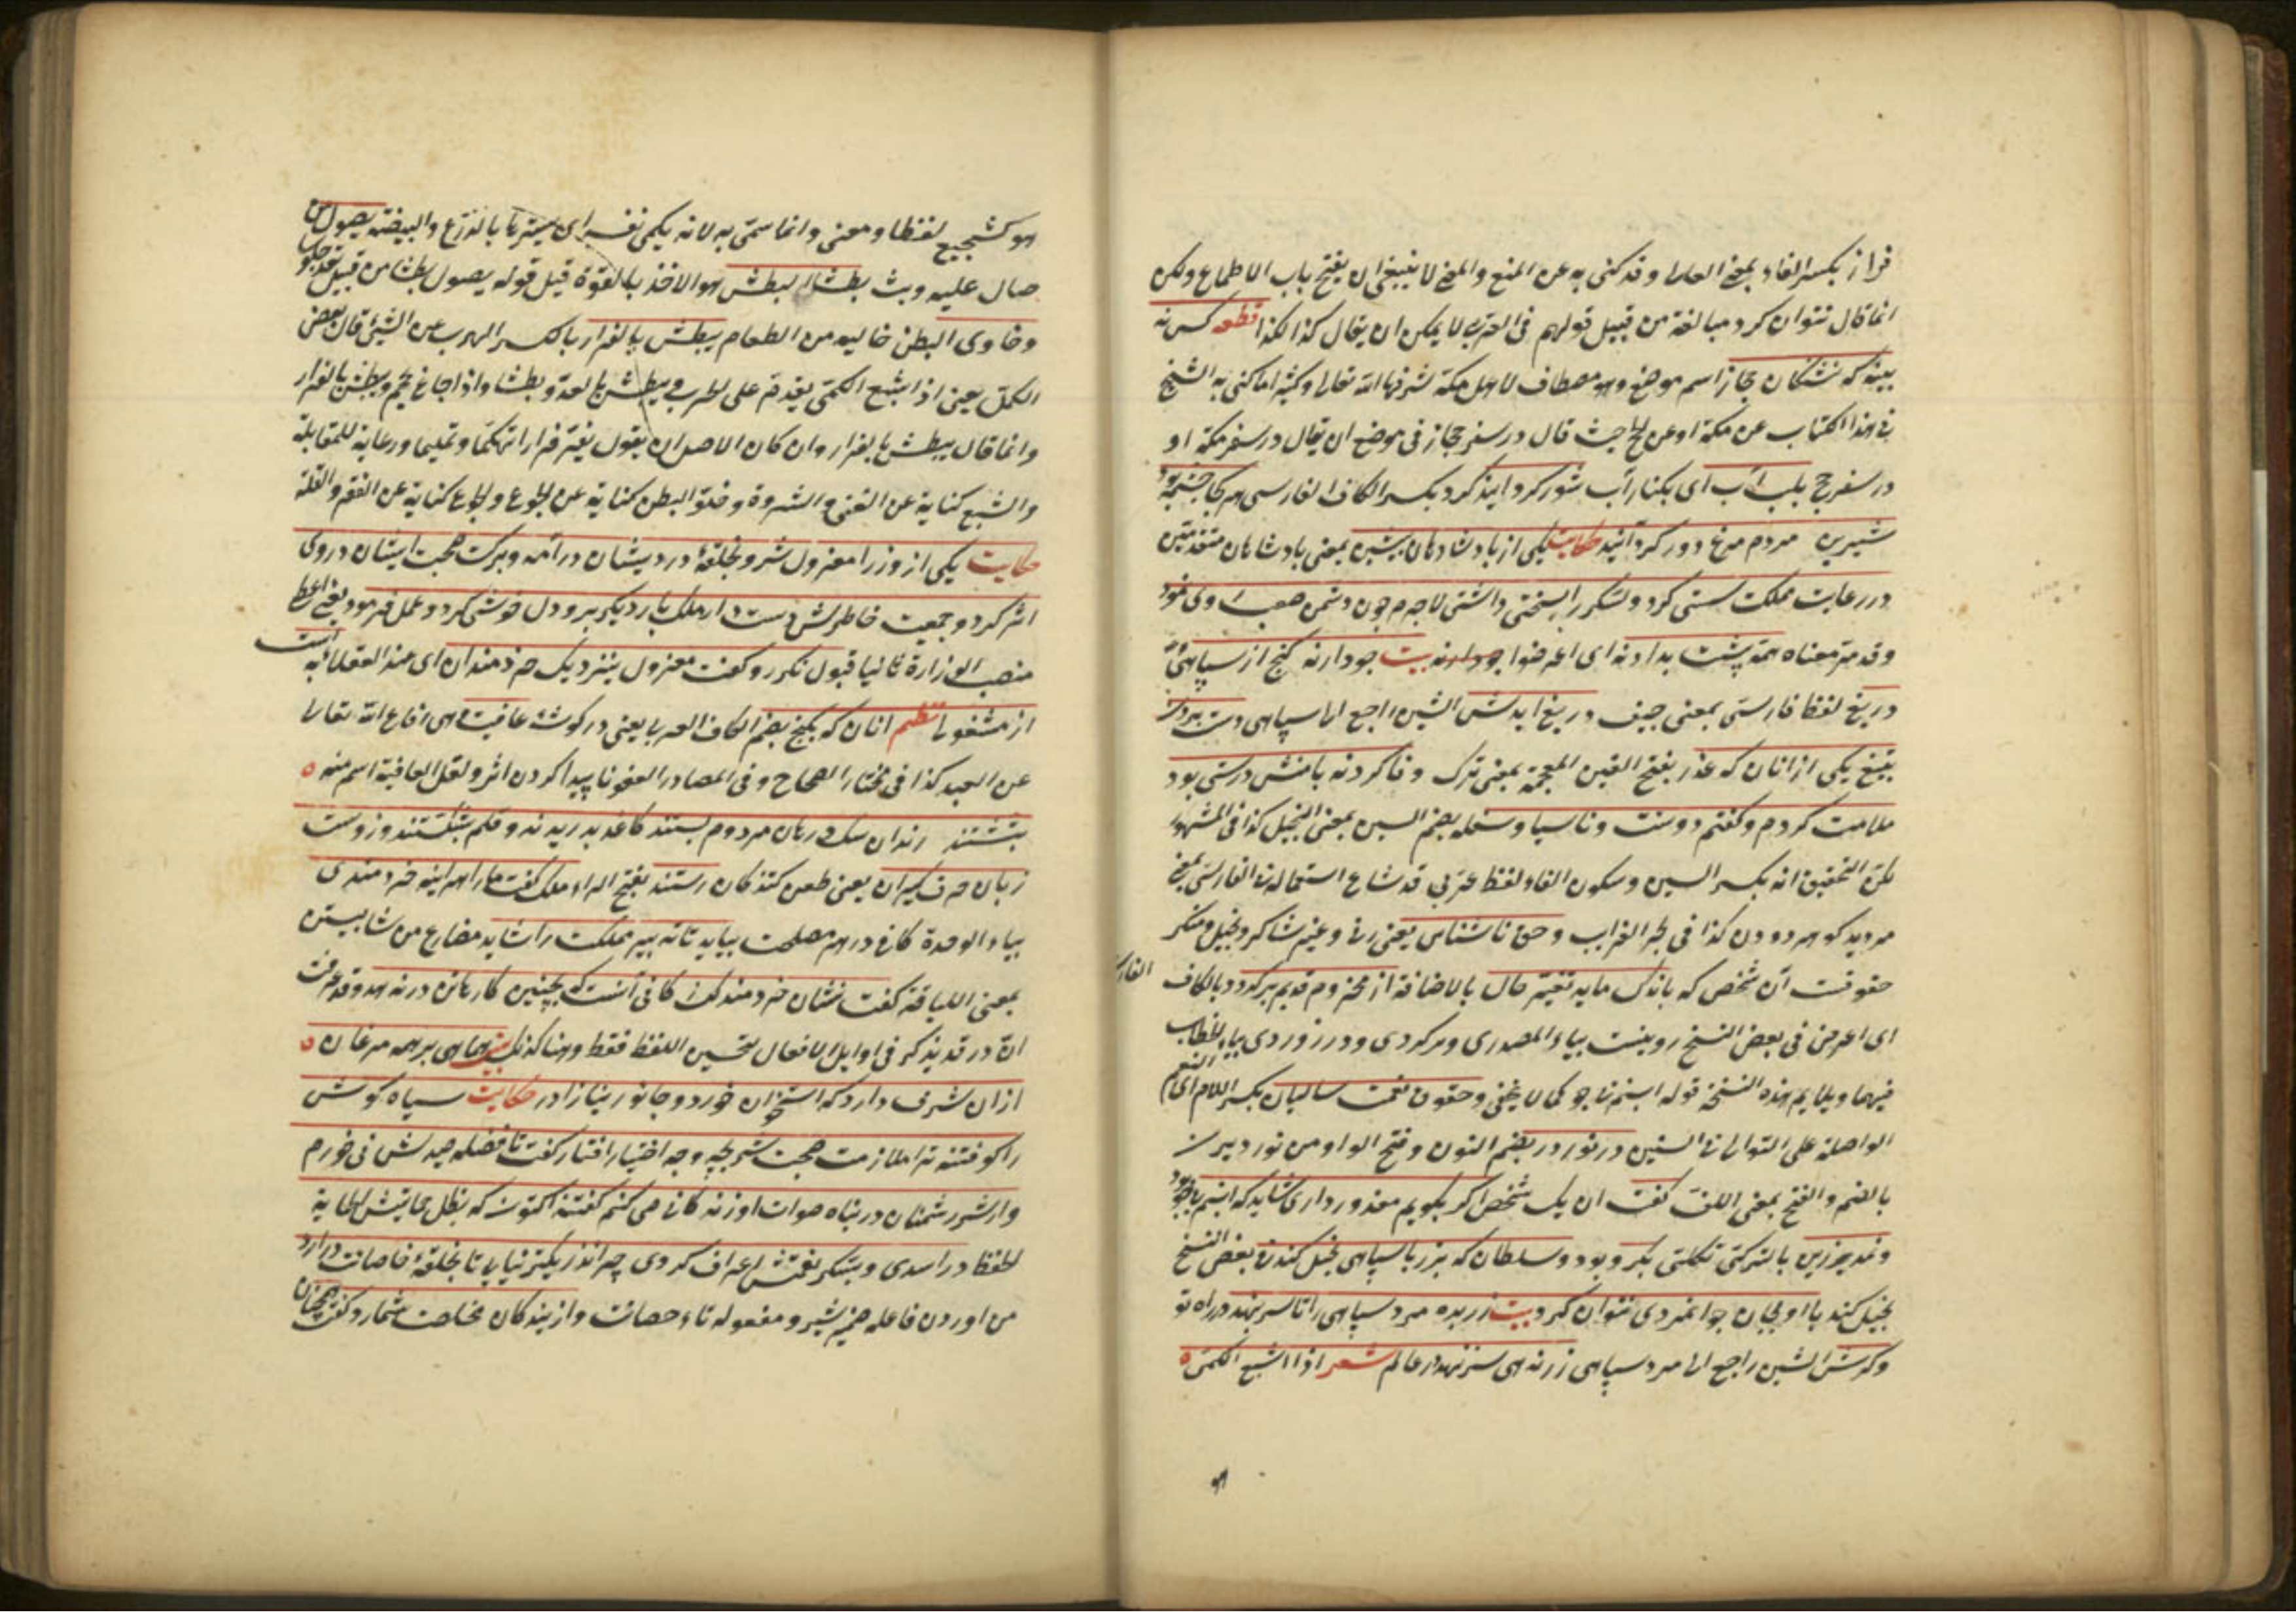 فراز بكسر الفاء بمعنى العلا وقد كنى به عن المنع والمعنى لا ينبغى ان يفتح باب الاطماع ولكن
انما قال نتوان كرد مبالغة من قبيل قولهم فى العرب لا يمكن ان يقال كذا لكذا قطعه كس نه
بيند كه تشنكان حجاز اسم موضع وهو مصطاف لاهل مكة شرفها الله تعالى وكثيرا ما كنى به الشيخ
فى هذا الكتاب عن مكة او عن الحج حيث قال در سفر حجاز فى موضع ان يقال در سفر مكة او
در سفر حج بلب آب اى بكنار آب شور كرد ايند كرد بكسر الكاف الفارسى هر كجا چشمه بود
شيرين مردم مرغ و مور كرد آيند حكايت يكى از پادشاهان پيشين بمعنى پادشاهان متقدمين
در رعايت مملكت سستى كرد ولشكر را بسختى داشتى لاجرم چون دشمن صعب روى نمود
وقد مر معناه همه پشت بدادند اى اعرضوا چو دارند بيت چو دارند كنج از سپاهى
دريغ لفظ فارسى بمعنى حيف دريغ ايدش الشين راجع الى سپاهى دست بردن
بتيغ يكى از انان كه غدر بفتح الغين المعجمة بمعنى ترك وفا كردند با منش دوستى بود
ملامت كردم وكفتم دونست وناسپاس وسفله بضم السين بمعنى البخيل كذا فى المشهور
لكن التحقيق انه بكسر السين وسكون الفاء لفظ عربى قد شاع استعماله فى الفارسى بمعنى
مرد بدكو هر ودون كذا فى بحر الغرايب وحق ناشناس يعنى وغير شاكر وبخيل ومنكر
حقوقت آن شخص كه باندك مايه تغير حال بالاضافة از مخدوم قديم بركردد بالكاف الفارسى
اى اعرض فى بعض النسخ روينست بياء المصدرى وبركردى ودر نوردى بياء الخطاب
فيهما ويلايم هذه النسخة قوله اسبم ناجو كما لا يخفى وحقوق نعمت ساليان بكسر اللام اى النعم
الواصلة على التوالى فى السنين در نوردد بضم النون وفتح الواو من نورديدن
بالضم والفتح بمعنى اللف كفت ان يك شخص اكر بكويم معذور دارى شايد كه اسبم بى جو بود
ونمد زين بالتركى تكلتى بكرو بود وسلطان كه بزر با سپاهى بخيلى كند فى بعض النسخ
بخيل كند با او بجان جوانمردى نتوان كرد بيت زر بده مرد سپاهى را تا سر بنهد در راه تو
وكرش الشين راجع الى مرد سپاهى زر ندهى سر بنهد در عالم شعر اذا شبع الكمى
هو كشجيع لفظا ومعنى وانما سمى به لانه يكمى نفسه اى يسترها بالدرع والبيضة يصول من
صال عليه وثب بطشا البطش هو الاخذ بالقوة قيل قوله يصول بطشا من قبيل قعد جلوسا
وخاوى البطن خاليه من الطعام يبطش بالفرار بالكسر الهرب من الشئ قال بعض
الكمل يعنى اذا شبع الكمى يقدم على الحرب ويبطش بالعدو بطشا واذا جاع يحجم ويبطش بالفرار
وانما قال يبطش بالفرار وان كان الاصل ان يقول يفر فرارا تهكما وتمليحا ورعاية للمقابلة
والشبع كناية عن الغنى والثروة وخلو البطن كناية عن الجوع والجوع كناية عن الفقر والقلة
حكايت يكى از وزرا معزول شد وبحلقهٔ درويشان در آمد وبركت صحبت ايشان دروى
اثر كرد وجمعيت خاطرش دست داد ملك بار ديكر برو دل خوش كرد وعمل فرمود يعنى اعطا
منصب الوزارة ثانيا قبول نكرد وكفت معزولى بنزديك خردمندان اى عند العقلاء به است
از مشغولى نظم انان كه بكنج بضم الكاف العربى يعنى در كوشهٔ عافيت هى دفاع الله تعالى
عن العبد كذا فى مختار الصحاح وفى المصادر العفو ناپيدا كردن اثر ولعل العافية اسم منه
بنشستند دندان سك ودهان مردم بستند كاغذ بدريدند وقلم بشكستند وز دست
زبان حرف كيران يعنى طعن كنندكان رستند بفتح الراء ملك كفت ما را هر اينه خردمندى
بياء الوحدة كافى در هر مصلحت ببايد تا تدبير مملكت را شايد مضارع من شايستن
بمعنى اللياقة كفت نشان خردمند كافى آنست كه بچنين كارها تن در ندهد وقد عرفت
ان در قد يذكر فى اوايل الافعال لتحسين اللفظ فقط وهنا كذلك بيت هماى بر همه مرغان
ازان شرف دارد كه استخوان خورد وجانور نيازارد حكايت سياه كوش
را كفتند ترا ملازمت صحبت شير بچه وجه اختيار افتاد كفت تا فضلهٔ صيدش مى خورم
واز شر دشمنان در پناه صولت او زندكانى مى كنم كفتند اكنون كه بظل حمايتش الحماية
الحفظ در امدى وبشكر نعمتش اعتراف كردى چرا نزديكتر نيايى تا بحلقهٔ خاصانت در ارد
من اوردن فاعله ضمير شير ومفعوله تاء خاصانت واز بندكان مخلصت شمارد كفت همچنان